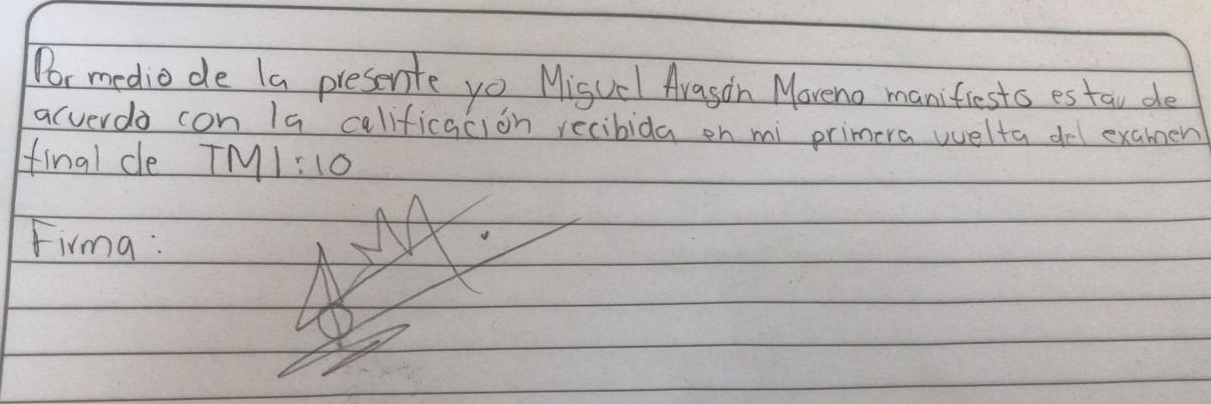 Por medio de la presente yo Miguel Aragón Moreno manifiesto estar de
acuerdo con la calificación recibida en mi primera vuelta del examen
final de TM1:10
Firma: